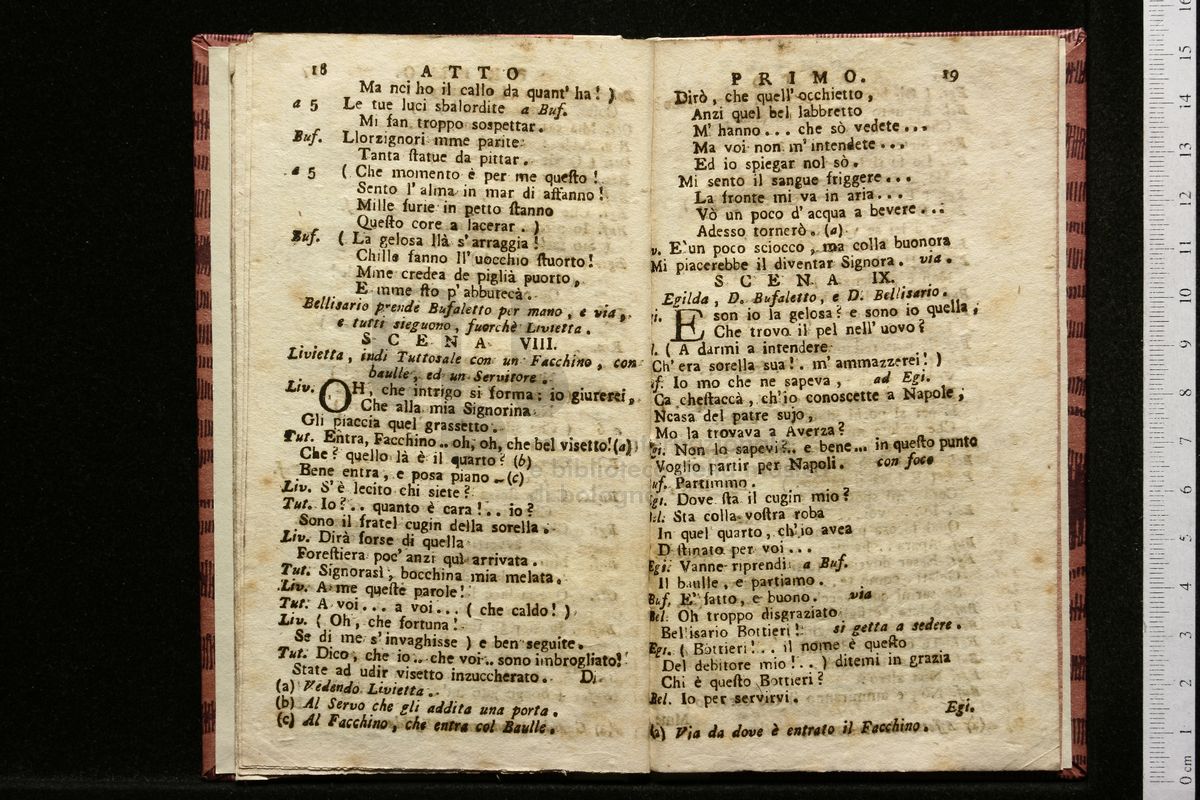 18 ATTO
Ma nci ho il callo da quant' ha! )
a 5 Le tue luci sbalordite a Buf.
Mi fan troppo sospettar.
Buf. Llorzignori mme parite
Tanta ſtatue da pittar.
a 5 ( Che momento è per me queſto!
Sento l' alma in mar di affanno!
Mille furie in petto ſtanno
Queſto core a lacerar. )
Buf. ( La gelosa llà s' arraggia!
Chille fanno ll' uocchio ſtuorto!
Mme credea de piglià puorto,
E mme ſto p' abbutecà.
Bellisario prende Bufaletto per mano, e via,
e tutti sieguono, fuorchè Livietta.
SCENA VIII.
Livietta, indi Tuttosale con un Facchino, con
baulle, ed un Servitore.
Liv. OH, che intrigo si forma: io giurerei,
Che alla mia Signorina
Gli piaccia quel grassetto.
Tut. Entra, Facchino.. oh, oh, che bel visetto! (a)
Che? quello là è il quarto? (b)
Bene entra, e posa piano - (c)
Liv. S' è lecito chi siete?
Tut. Io?.. quanto è cara!.. io?
Sono il fratel cugin della sorella.
Liv. Dirà forse di quella
Foreſtiera poc' anzi quì arrivata.
Tut. Signorasì, bocchina mia melata.
Liv. A me queſte parole!
Tut. A voi... a voi... ( che caldo! )
Liv. ( Oh, che fortuna!
Se di me s' invaghisse ) e ben seguite.
Tut. Dico, che io.. che voi.. sono imbrogliato!
State ad udir visetto inzuccherato. Di-
(a) Vedendo Livietta.
(b) Al Servo che gli addita una porta.
(c) Al Facchino, che entra col Baulle.
PRIMO. 19
Dirò, che quell' occhietto,
Anzi quel bel labbretto
M' hanno... che sò vedete...
Ma voi non m' intendete...
Ed io spiegar nol sò.
Mi sento il sangue friggere...
La fronte mi va in aria...
Vò un poco d' acqua a bevere...
Adesso tornerò. (a)
v. E' un poco sciocco, ma colla buonora
Mi piacerebbe il diventar Signora. via.
SCENA IX.
Egilda, D. Bufaletto, e D. Bellisario.
gi. E son io la gelosa? e sono io quella,
Che trova il pel nell' uovo?
l. ( A darmi a intendere
Ch' era sorella sua!. m' ammazzerei! )
uf. Io mo che ne sapeva, ad Egi.
Ca cheſtaccà, ch' io conoscette a Napole,
Ncasa del patre sujo,
Mo la trovava a Averza?
gi. Non lo sapevi?.. e bene... in queſto punto
Voglio partir per Napoli. con foco
uf. Partimmo.
Egi. Dove ſta il cugin mio?
Bel. Sta colla voſtra roba
In quel quarto, ch' io avea
D ſtinato per voi...
Egi. Vanne riprendi a Buf.
Il baulle, e partiamo.
Buf. E' fatto, e buono. via
Bel. Oh troppo disgraziato
Bellisario Bottieri! si getta a sedere.
Egi. ( Bottieri!.. il nome è queſto
Del debitore mio!.. ) ditemi in grazia
Chi è queſto Bottieri?
Bel. Io per servirvi.
Egi.
(a) Via da dove è entrato il Facchino.